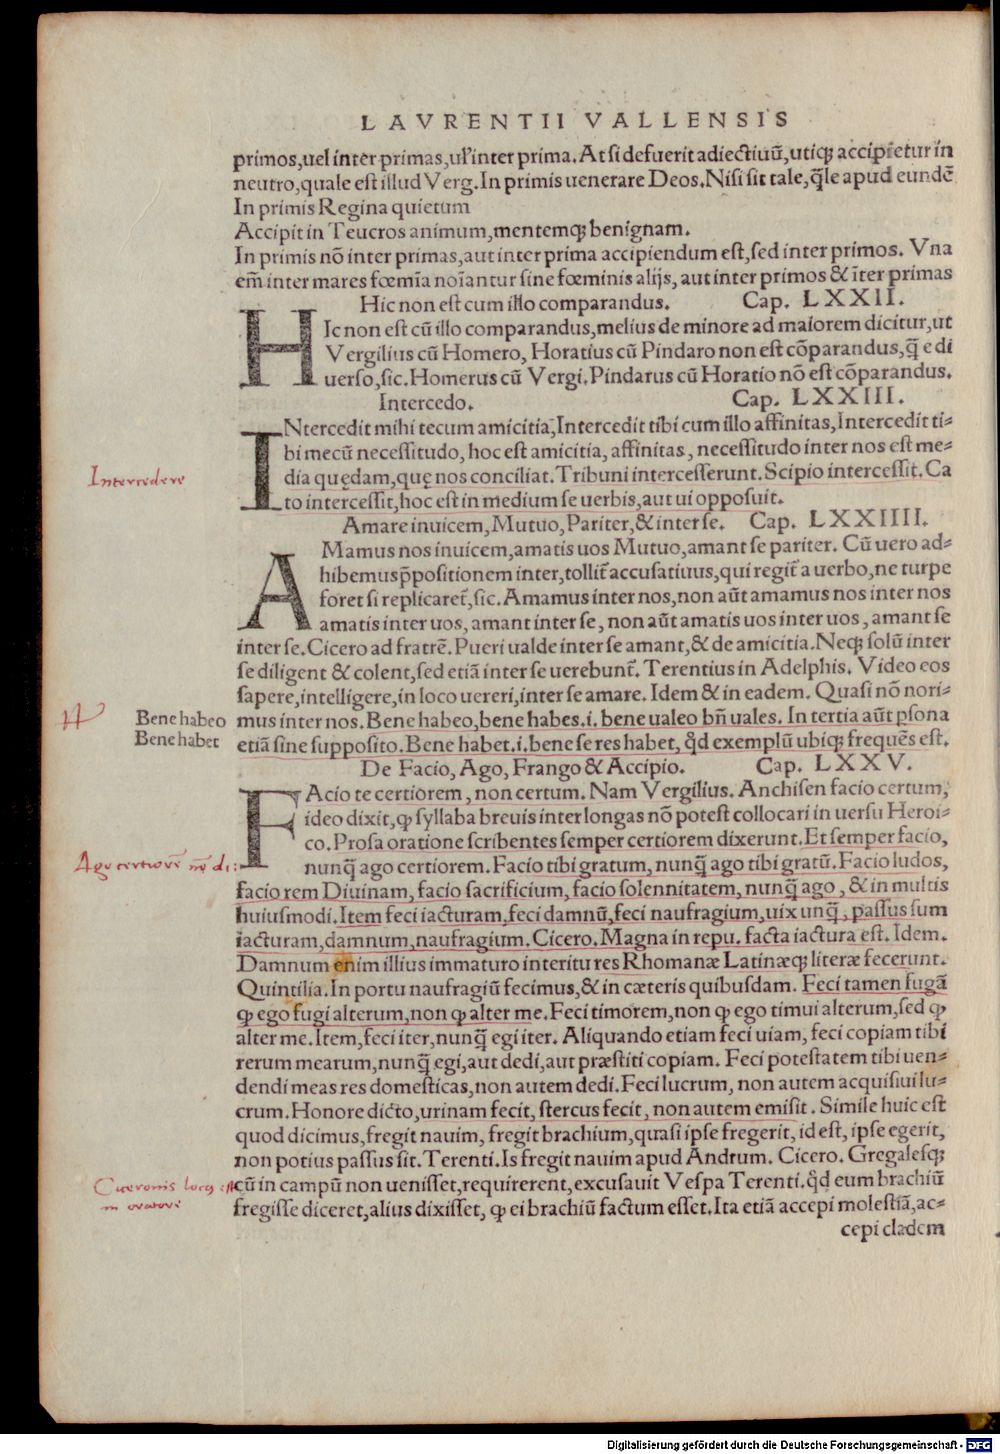 LAVRENTII VALLENSIS
primos,uel inter primas,ul'inter prima.At si defuerit adiectiuũ,utiqꝫ accipietur in
neutro,quale est illud Verg.In primis uenerare Deos.Nisi sit tale,q̃le apud eundẽ
In primis Regina quietum
Accipit in Teucros animum,mentemqꝫ benignam.
In primis nõ inter primas,aut inter prima accipiendum est,sed inter primos. Vna
em̃ inter mares fœmĩa noĩantur sine fœminis alijs, aut inter primos & ĩter primas
Hic non est cum illo comparandus. Cap. LXXII.
HIc non est cũ illo comparandus,melius de minore ad maiorem dicitur,ut
Vergilius cũ Homero, Horatius cũ Pindaro non est cõparandus,q̃ e di
uerso,sic.Homerus cũ Vergi.Pindarus cũ Horatio nõ est cõparandus.
Intercedo. Cap. LXXIII.
INtercedit mihi tecum amicitia,Intercedit tibi cum illo affinitas,Intercedit ti-
bi mecũ necessitudo, hoc est amicitia, affinitas, necessitudo inter nos est me-
Intercedere
dia quędam,quę nos conciliat.Tribuni intercesserunt.Scipio intercessit.Ca
to intercessit,hoc est in medium se uerbis,aut ui opposuit.
Amare inuicem,Mutuo,Pariter,& inter se. Cap. LXXIIII.
AMamus nos inuicem,amatis uos Mutuo,amant se pariter. Cũ uero ad-
hibemus p̃positionem inter,tollit̃ accusatiuus,qui regit̃ a uerbo,ne turpe
foret si replicaret̃,sic.Amamus inter nos,non aũt amamus nos inter nos
amatis inter uos, amant inter se, non aũt amatis uos inter uos, amant se
inter se.Cicero ad fratrẽ.Pueri ualde inter se amant,& de amicitia.Neqꝫ solũ inter
se diligent & colent,sed etiã inter se uerebunt̃. Terentius in Adelphis. Video eos
sapere,intelligere,in loco uereri,inter se amare. Idem & in eadem. Quasi nõ nori-
Bene habeo
mus inter nos. Bene habeo,bene habes.i. bene ualeo bñ uales. In tertia aũt psona
Bene habet
etiã sine supposito.Bene habet.i.bene se res habet, q̊d exemplũ ubiqꝫ frequẽs est.
De Facio, Ago, Frango & Accipio. Cap. LXXV.
FAcio te certiorem, non certum. Nam Vergilius. Anchisen facio certum,
ideo dixit,ꝙ syllaba breuis inter longas nõ potest collocari in uersu Heroi-
co.Prosa oratione scribentes semper certiorem dixerunt.Et semper facio,
Ago certiorẽ nõ di:
nunq̃ ago certiorem.Facio tibi gratum, nunq̃ ago tibi gratũ.Facio ludos,
facio rem Diuinam, facio sacrificium, facio solennitatem, nunq̃ ago, & in multis
huiusmodi.Item feci iacturam,feci damnũ,feci naufragium,uix unq̃, passus sum
iacturam,damnum,naufragium.Cicero.Magna in repu. facta iactura est. Idem.
Damnum enim illius immaturo interitu res Rhomanæ Latinæqꝫ literæ fecerunt.
Quintilia.In portu naufragiũ fecimus,& in cæteris quibusdam. Feci tamen fugã
ꝙ ego fugi alterum,non ꝙ alter me.Feci timorem,non ꝙ ego timui alterum,sed ꝙ
alter me.Item,feci iter,nunq̃ egi iter. Aliquando etiam feci uiam, feci copiam tibi
rerum mearum,nunq̃ egi,aut dedi,aut præstiti copiam. Feci potestatem tibi uen-
dendi meas res domesticas,non autem dedi.Feci lucrum, non autem acquisiui lu-
crum.Honore dicto,urinam fecit, stercus fecit, non autem emisit. Simile huic est
quod dicimus,fregit nauim, fregit brachium,quasi ipse fregerit, id est, ipse egerit,
non potius passus sit.Terenti.Is fregit nauim apud Andrum. Cicero. Gregalesqꝫ
Ciceronis locꝰ est
in oratore
cũ in campũ non uenisset,requirerent,excusauit Vespa Terenti.q̊d eum brachiũ
fregisse diceret,alius dixisset, ꝙ ei brachiũ factum esset.Ita etiã accepi molestiã,ac-
cepi cladem
Digitalisierung gefördert durch die Deutsche Forschungsgemeinschaft - DFG